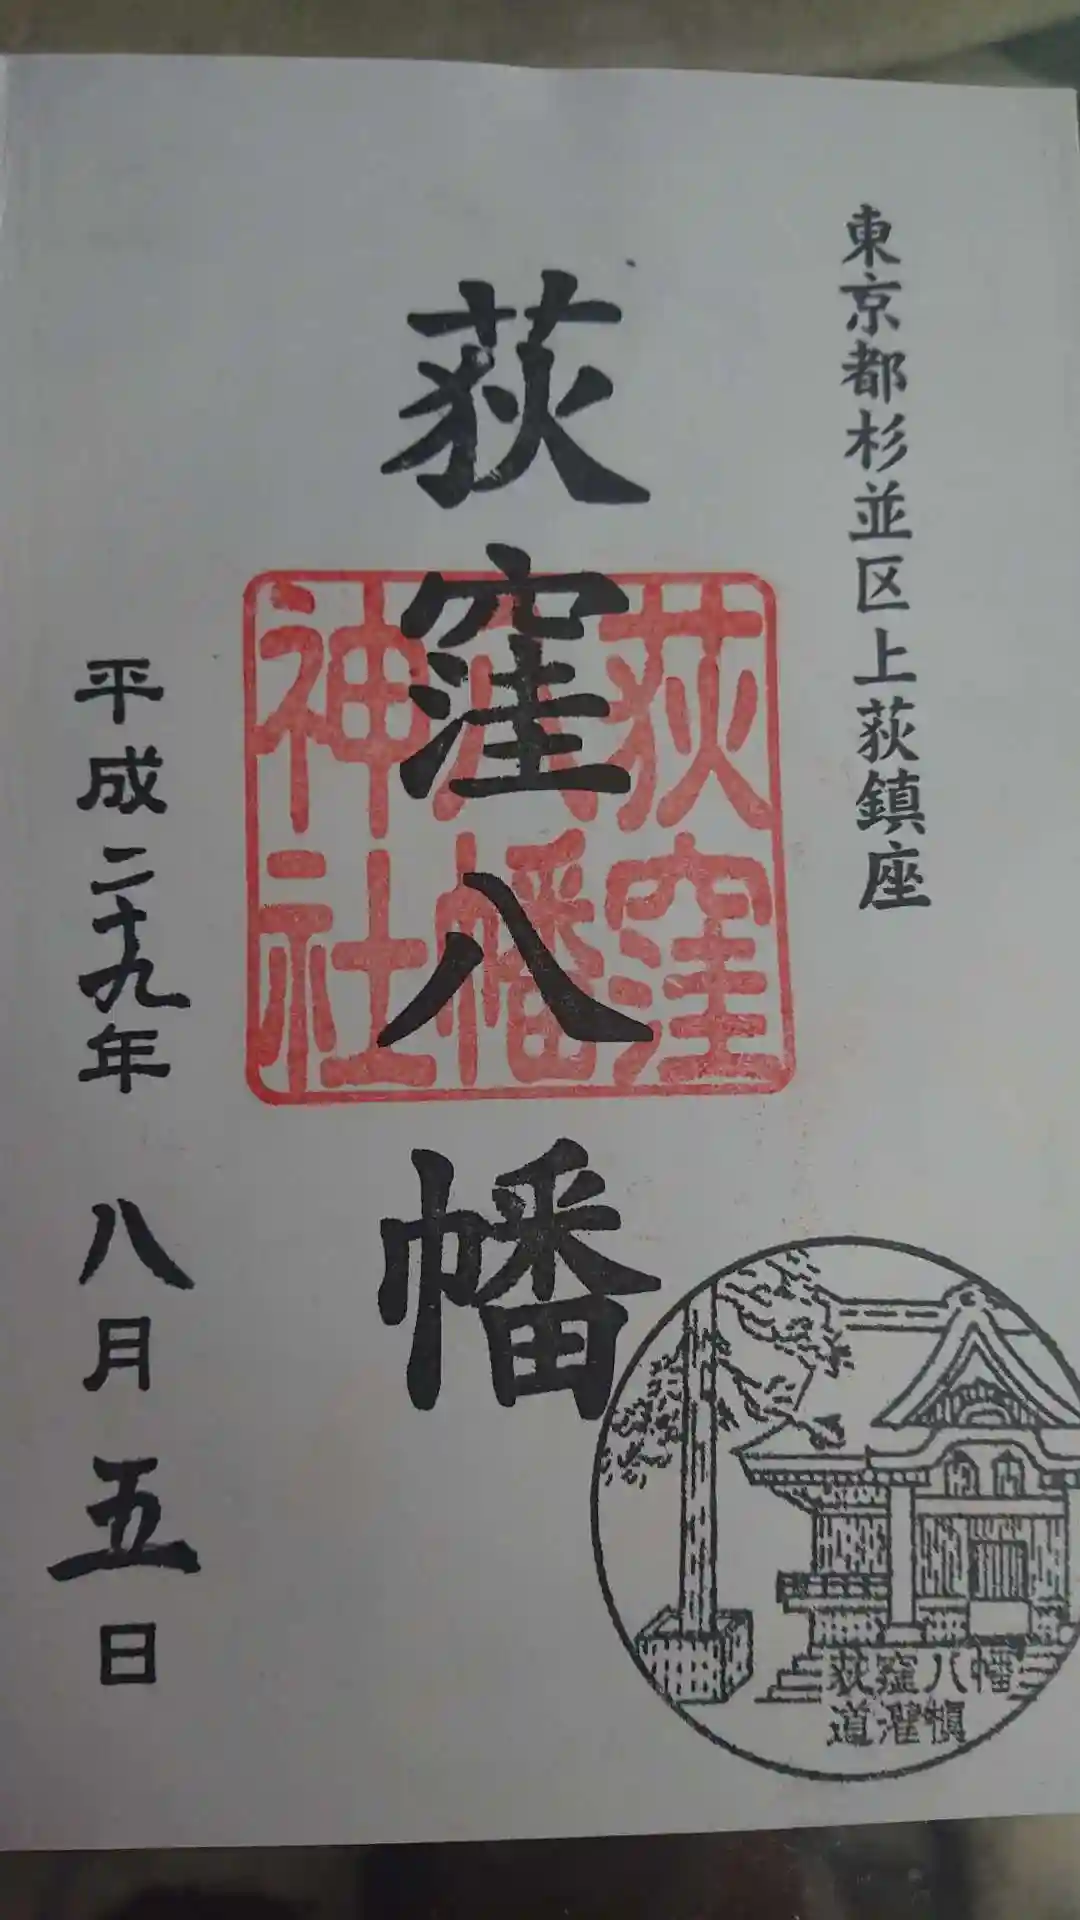 東京都杉並区上荻鎮座
荻窪八幡
荻窪
八幡
神社
平成二十九年 八月五日
荻窪八幡
道灌槇